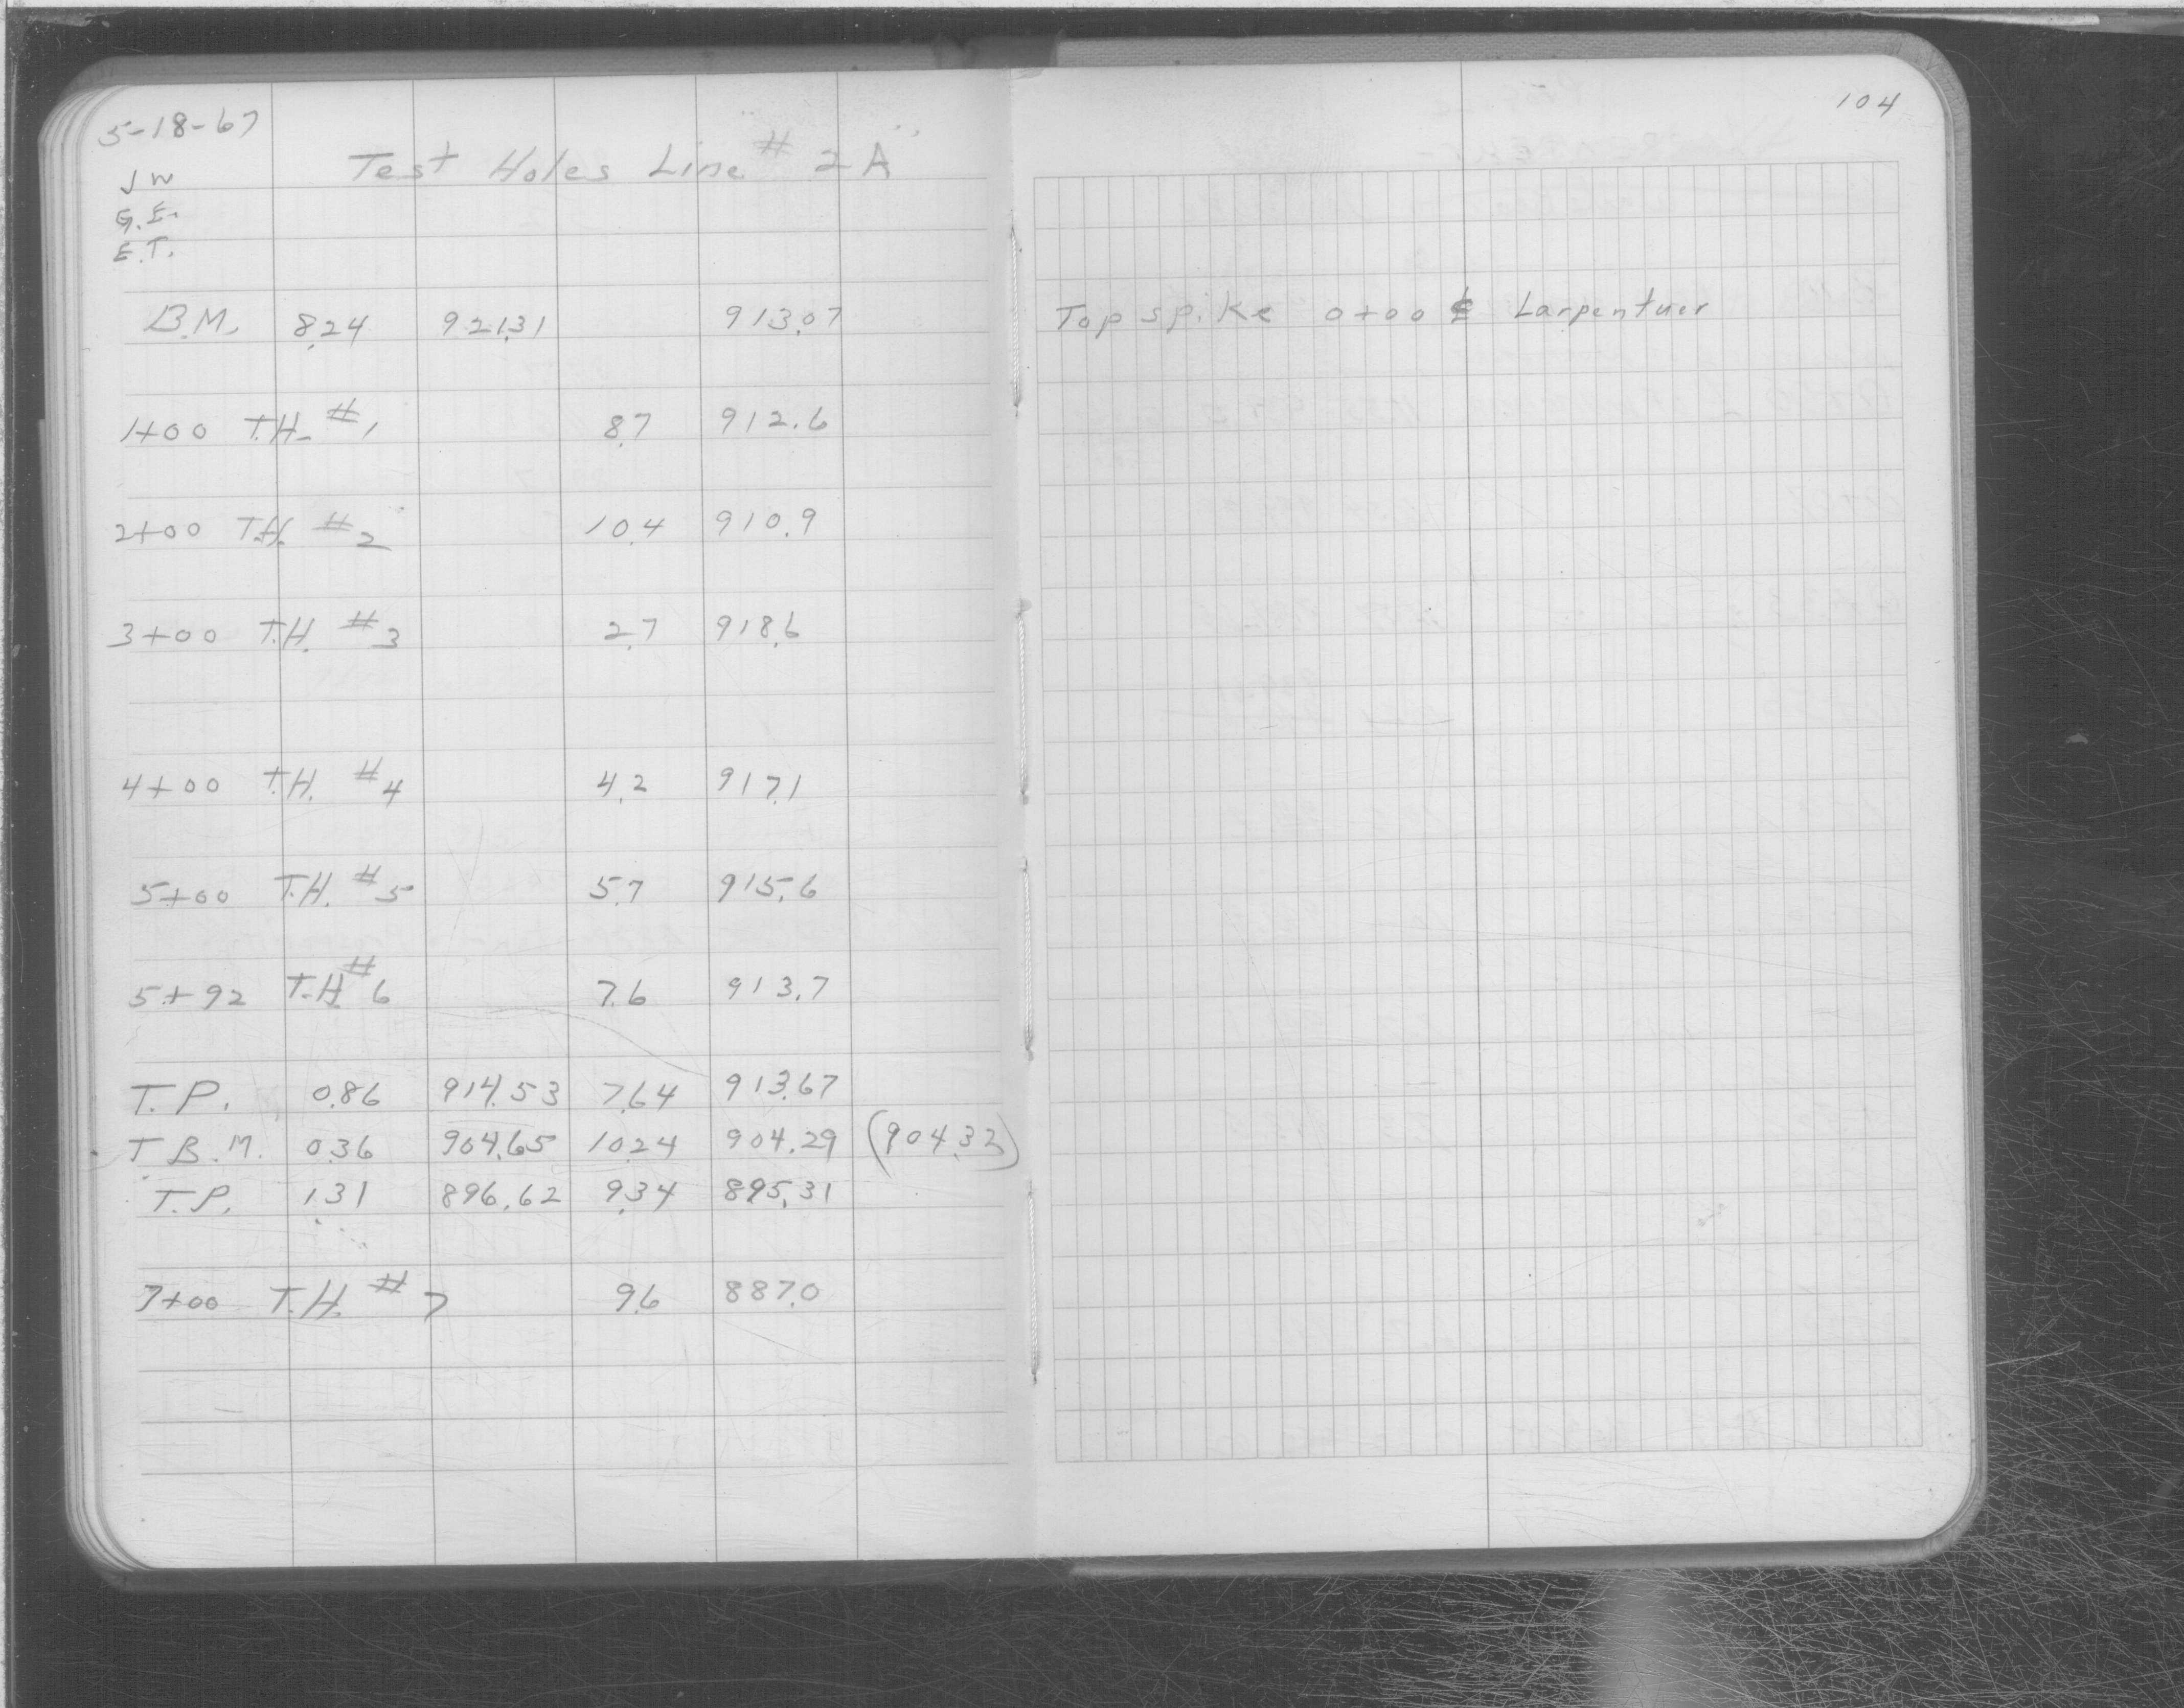 5-18-67
Test Holes Line # "2A"
JW
G.E.
E.T.
B.M. 8.24 921.31 913.07
1+00 T.H. #1 8.7 912.6
2+00 T.H. #2 10.4 910.9
3+00 T.H. #3 2.7 918.6
4+00 T.H. #4 4.2 917.1
5+00 T.H. #5 5.7 915.6
5+92 T.H. #6 7.6 913.7
T.P. 0.86 914.53 7.64 913.67
T.B.M. 0.36 904.65 10.24 904.29 (904.32)
T.P. 1.31 896.62 9.34 895.31
7+00 T.H. #7 9.6 887.0
104
Top spike 0+00 ℄ Larpentuer